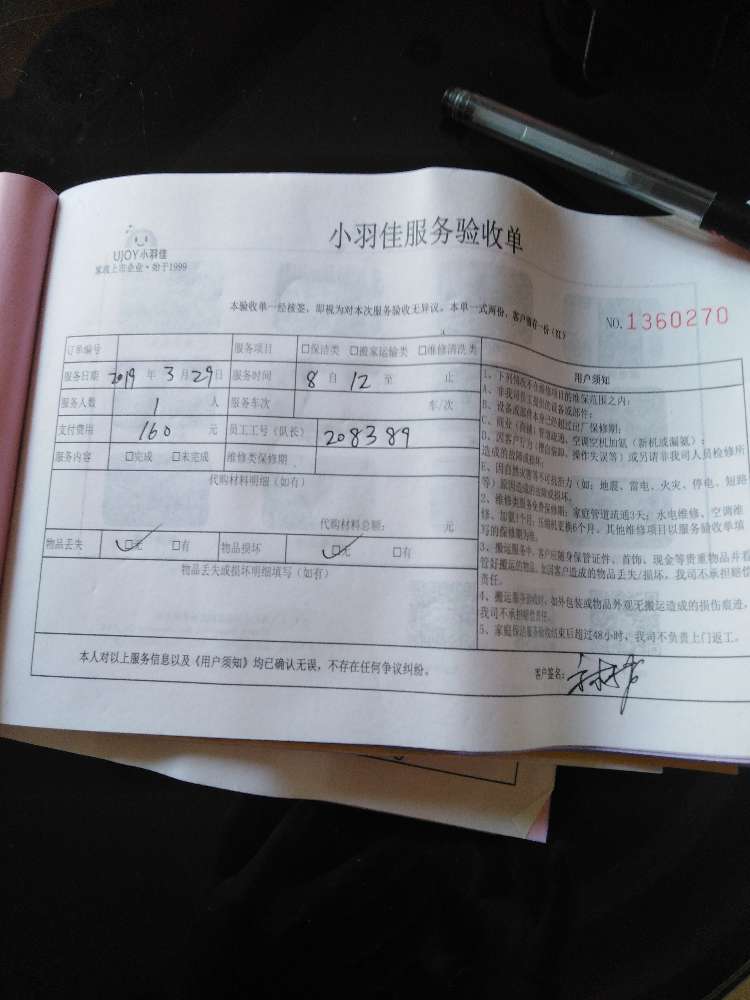 小羽佳服务验收单
UJOY小羽佳
家政上市企业·始于1999
本验收单一经核签，即视为对本次服务验收无异议。本单一式两份，客户留存一份（红）
NO.1360270
订单编号 服务项目 □保洁类 □搬家运输类 □维修清洗类
服务日期 2019 年 3 月 29 日 服务时间 8 自 12 至 止
服务人数 1 人 服务车次 车/次
支付费用 160 元 员工工号（队长） 208389
服务内容 □完成 □未完成 维修类保修期
代购材料明细（如有）
代购材料总额： 元
物品丢失 ☑无 □有 物品损坏 ☑无 □有
物品丢失或损坏明细填写（如有）
用户须知
1、下列情况不在维修项目的维保范围之内：
A、非我司员工提供的设备或部件；
B、设备或部件本身已经超过出厂保修期；
C、商业（商铺）管道疏通、空调空机加氟（新机或漏氟）；
D、因客户行为（擅自装卸、操作失误等）或另请非我司人员检修所
造成的故障或损坏；
E、因自然灾害等不可抗拒力（如：地震、雷电、火灾、停电、短路
等）原因造成的故障或损坏。
2、维修类服务免费保修期：家庭管道疏通3天；水电维修、空调维
修、加氟1个月；压缩机更换6个月。其他维修项目以服务验收单填
写的保修期为准。
3、搬运服务中，客户应随身保管证件、首饰、现金等贵重物品并看
管好搬运的物品。如因客户造成的物品丢失/损坏，我司不承担赔偿
责任。
4、搬运服务验收时，如外包装或物品外观无搬运造成的损伤痕迹，
我司不承担赔偿责任。
5、家庭保洁服务验收结束后超过48小时，我司不负责上门返工。
本人对以上服务信息以及《用户须知》均已确认无误，不存在任何争议纠纷。
客户签名：